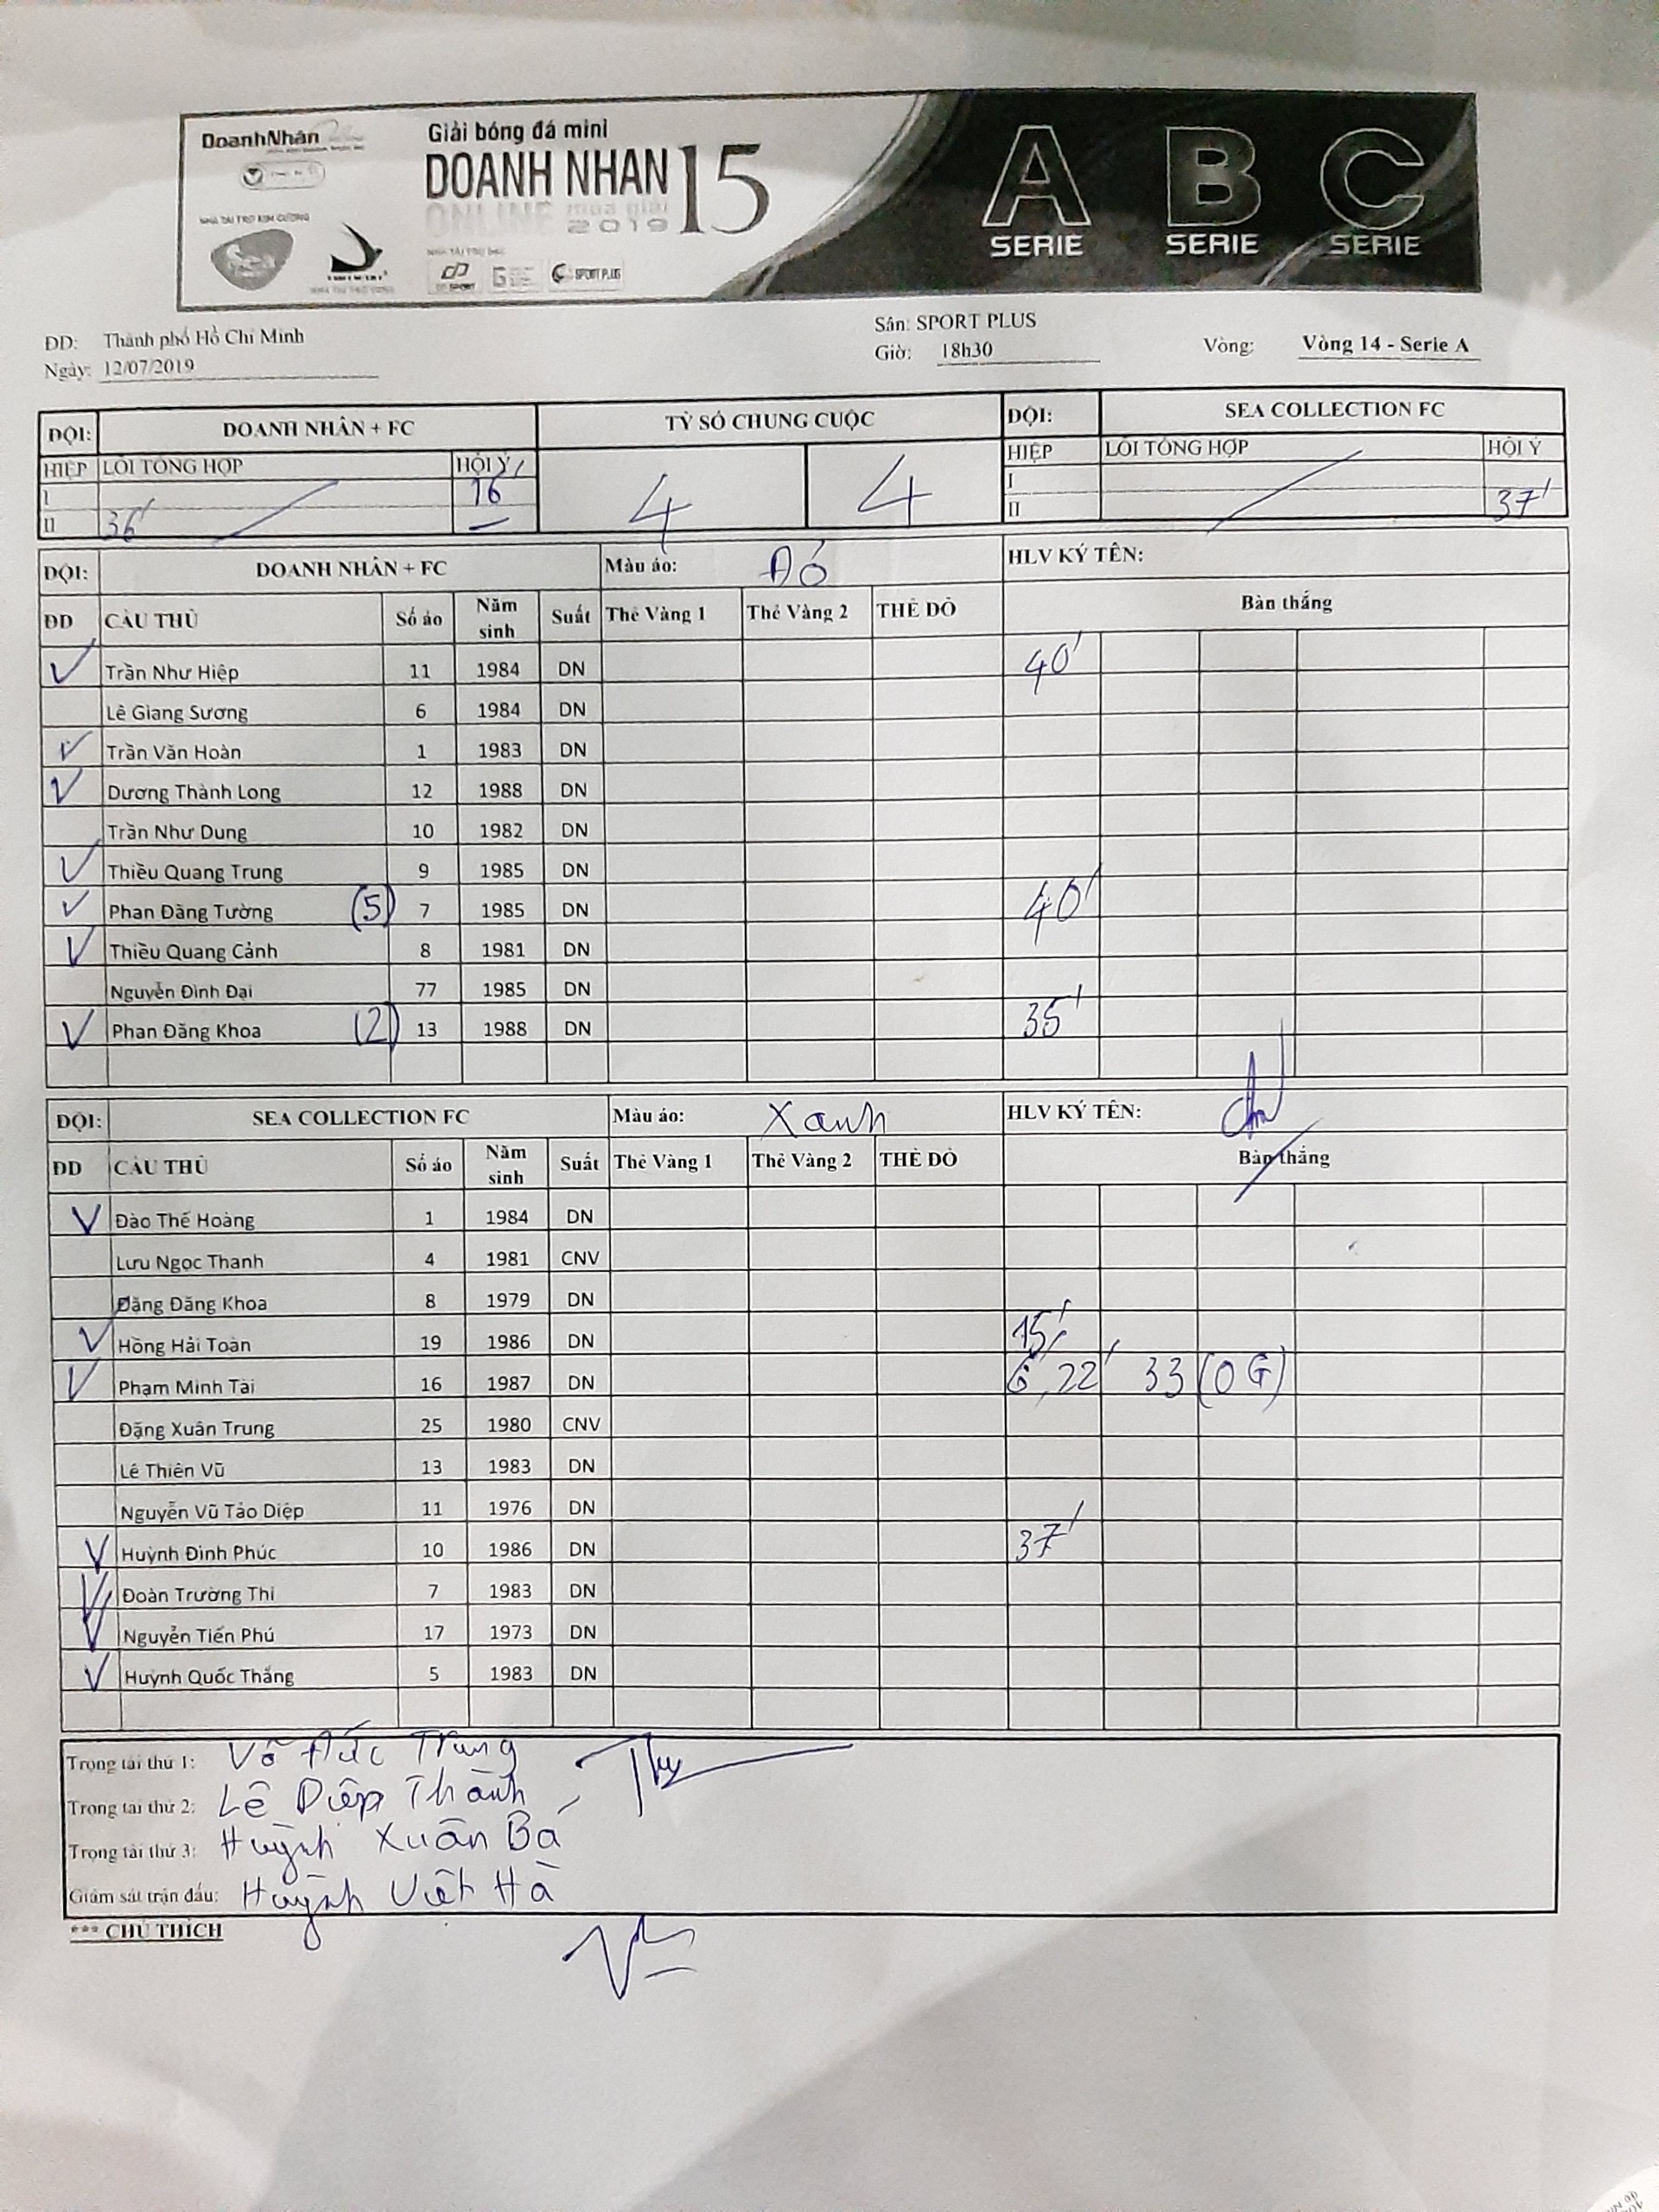 DoanhNhân
Giải bóng đá mini
DOANH NHAN 15
ONLINE mùa giải
2019
NHÀ TÀI TRỢ KIM CƯƠNG
Sea
SPORT PLUS
A B C
SERIE SERIE SERIE
ĐD: Thành phố Hồ Chí Minh
Sân: SPORT PLUS
Ngày: 12/07/2019 Giờ: 18h30 Vòng: Vòng 14 - Serie A
ĐỘI: DOANH NHÂN + FC TỶ SỐ CHUNG CUỘC ĐỘI: SEA COLLECTION FC
HIỆP LỖI TỔNG HỢP HỘI Ý 4 4 HIỆP LỖI TỔNG HỢP HỘI Ý
I 16' I
II 36' II 37'
ĐỘI: DOANH NHÂN + FC Màu áo: Đỏ HLV KÝ TÊN:
ĐD CẦU THỦ Số áo Năm sinh Suất Thẻ Vàng 1 Thẻ Vàng 2 THẺ ĐỎ Bàn thắng
Trần Như Hiệp 11 1984 DN 40'
Lê Giang Sương 6 1984 DN
Trần Văn Hoàn 1 1983 DN
Dương Thành Long 12 1988 DN
Trần Như Dung 10 1982 DN
Thiều Quang Trung 9 1985 DN
Phan Đăng Tường (5) 7 1985 DN 40'
Thiều Quang Cảnh 8 1981 DN
Nguyễn Đình Đại 77 1985 DN
Phan Đăng Khoa (2) 13 1988 DN 35'
ĐỘI: SEA COLLECTION FC Màu áo: Xanh HLV KÝ TÊN:
ĐD CẦU THỦ Số áo Năm sinh Suất Thẻ Vàng 1 Thẻ Vàng 2 THẺ ĐỎ Bàn thắng
Đào Thế Hoàng 1 1984 DN
Lưu Ngọc Thanh 4 1981 CNV
Đặng Đăng Khoa 8 1979 DN
Hồng Hải Toàn 19 1986 DN 15'
Phạm Minh Tài 16 1987 DN 6', 22' 33 (OG)
Đặng Xuân Trung 25 1980 CNV
Lê Thiên Vũ 13 1983 DN
Nguyễn Vũ Tảo Diệp 11 1976 DN
Huỳnh Đình Phúc 10 1986 DN 37'
Đoàn Trường Thi 7 1983 DN
Nguyễn Tiến Phú 17 1973 DN
Huỳnh Quốc Thắng 5 1983 DN
Trọng tài thứ 1: Võ Đức Trung
Trọng tài thứ 2: Lê Diệp Thành
Trọng tài thứ 3: Huỳnh Xuân Bá
Giám sát trận đấu: Huỳnh Việt Hà
*** CHÚ THÍCH